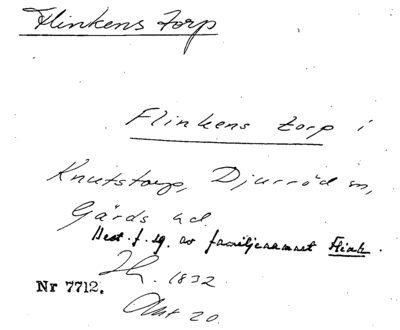 Flinkens torp
Flinkens torp i
Knutstorp, Djurröd sn,
Gärds hd.
Best. f. sg. av familjenamnet Flink.
1832
Nr 7712.
Akt 20